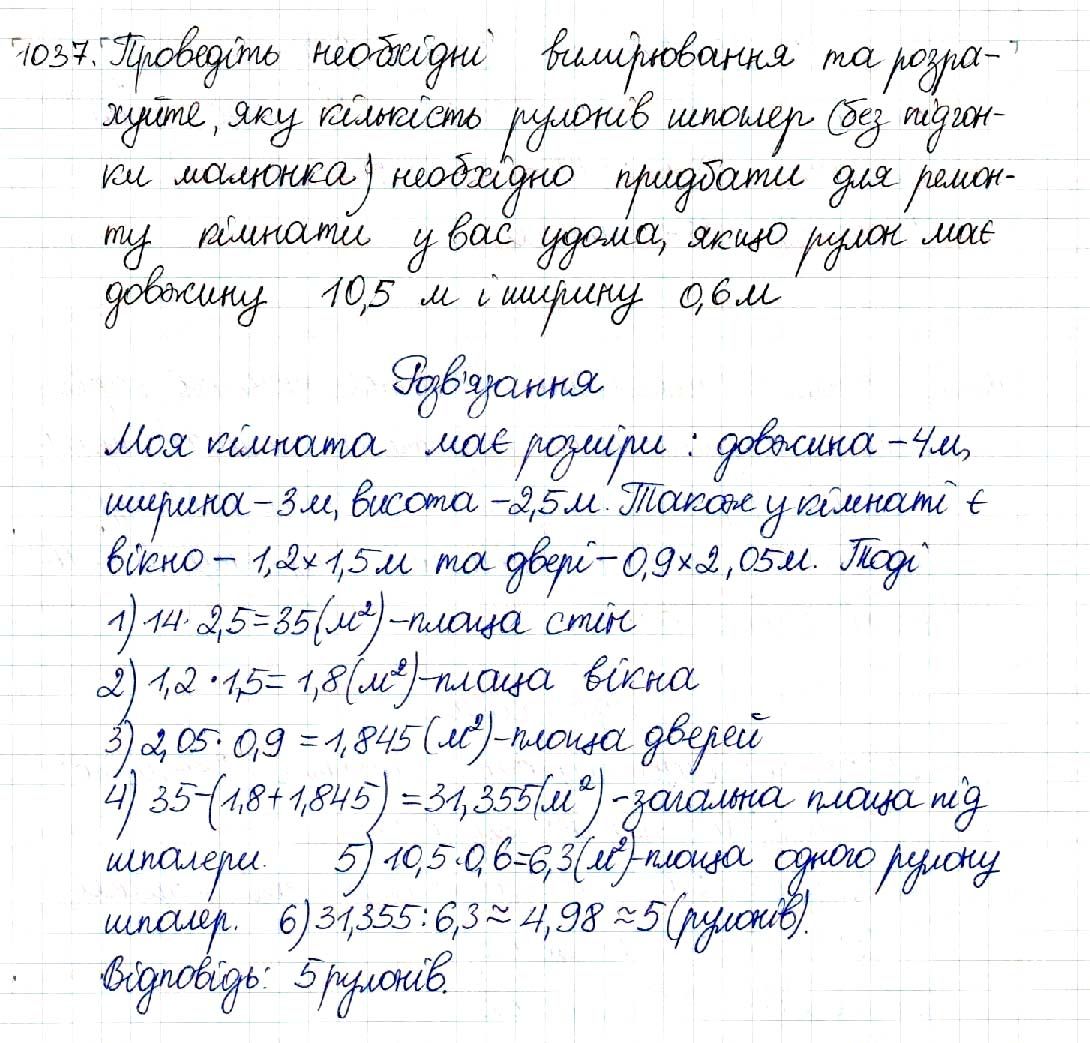 1037. Проведіть необхідні вимірювання та розра-
хуйте, яку кількість рулонів шпалер (без підгон-
ки малюнка) необхідно придбати для ремон-
ту кімнати у вас удома, якщо рулон має
довжину 10,5 м і ширину 0,6м
Розв'язання
Моя кімната має розміри: довжина – 4м,
ширина – 3м, висота – 2,5м. Також у кімнаті є
вікно – 1,2×1,5м та двері – 0,9×2,05м. Тоді
1) 14·2,5=35(м²) – площа стін
2) 1,2·1,5=1,8(м²) – площа вікна
3) 2,05·0,9=1,845(м²) – площа дверей
4) 35-(1,8+1,845)=31,355(м²) – загальна площа під
шпалери. 5) 10,5·0,6=6,3(м²) – площа одного рулону
шпалер. 6) 31,355:6,3≈4,98≈5(рулонів).
Відповідь: 5 рулонів.